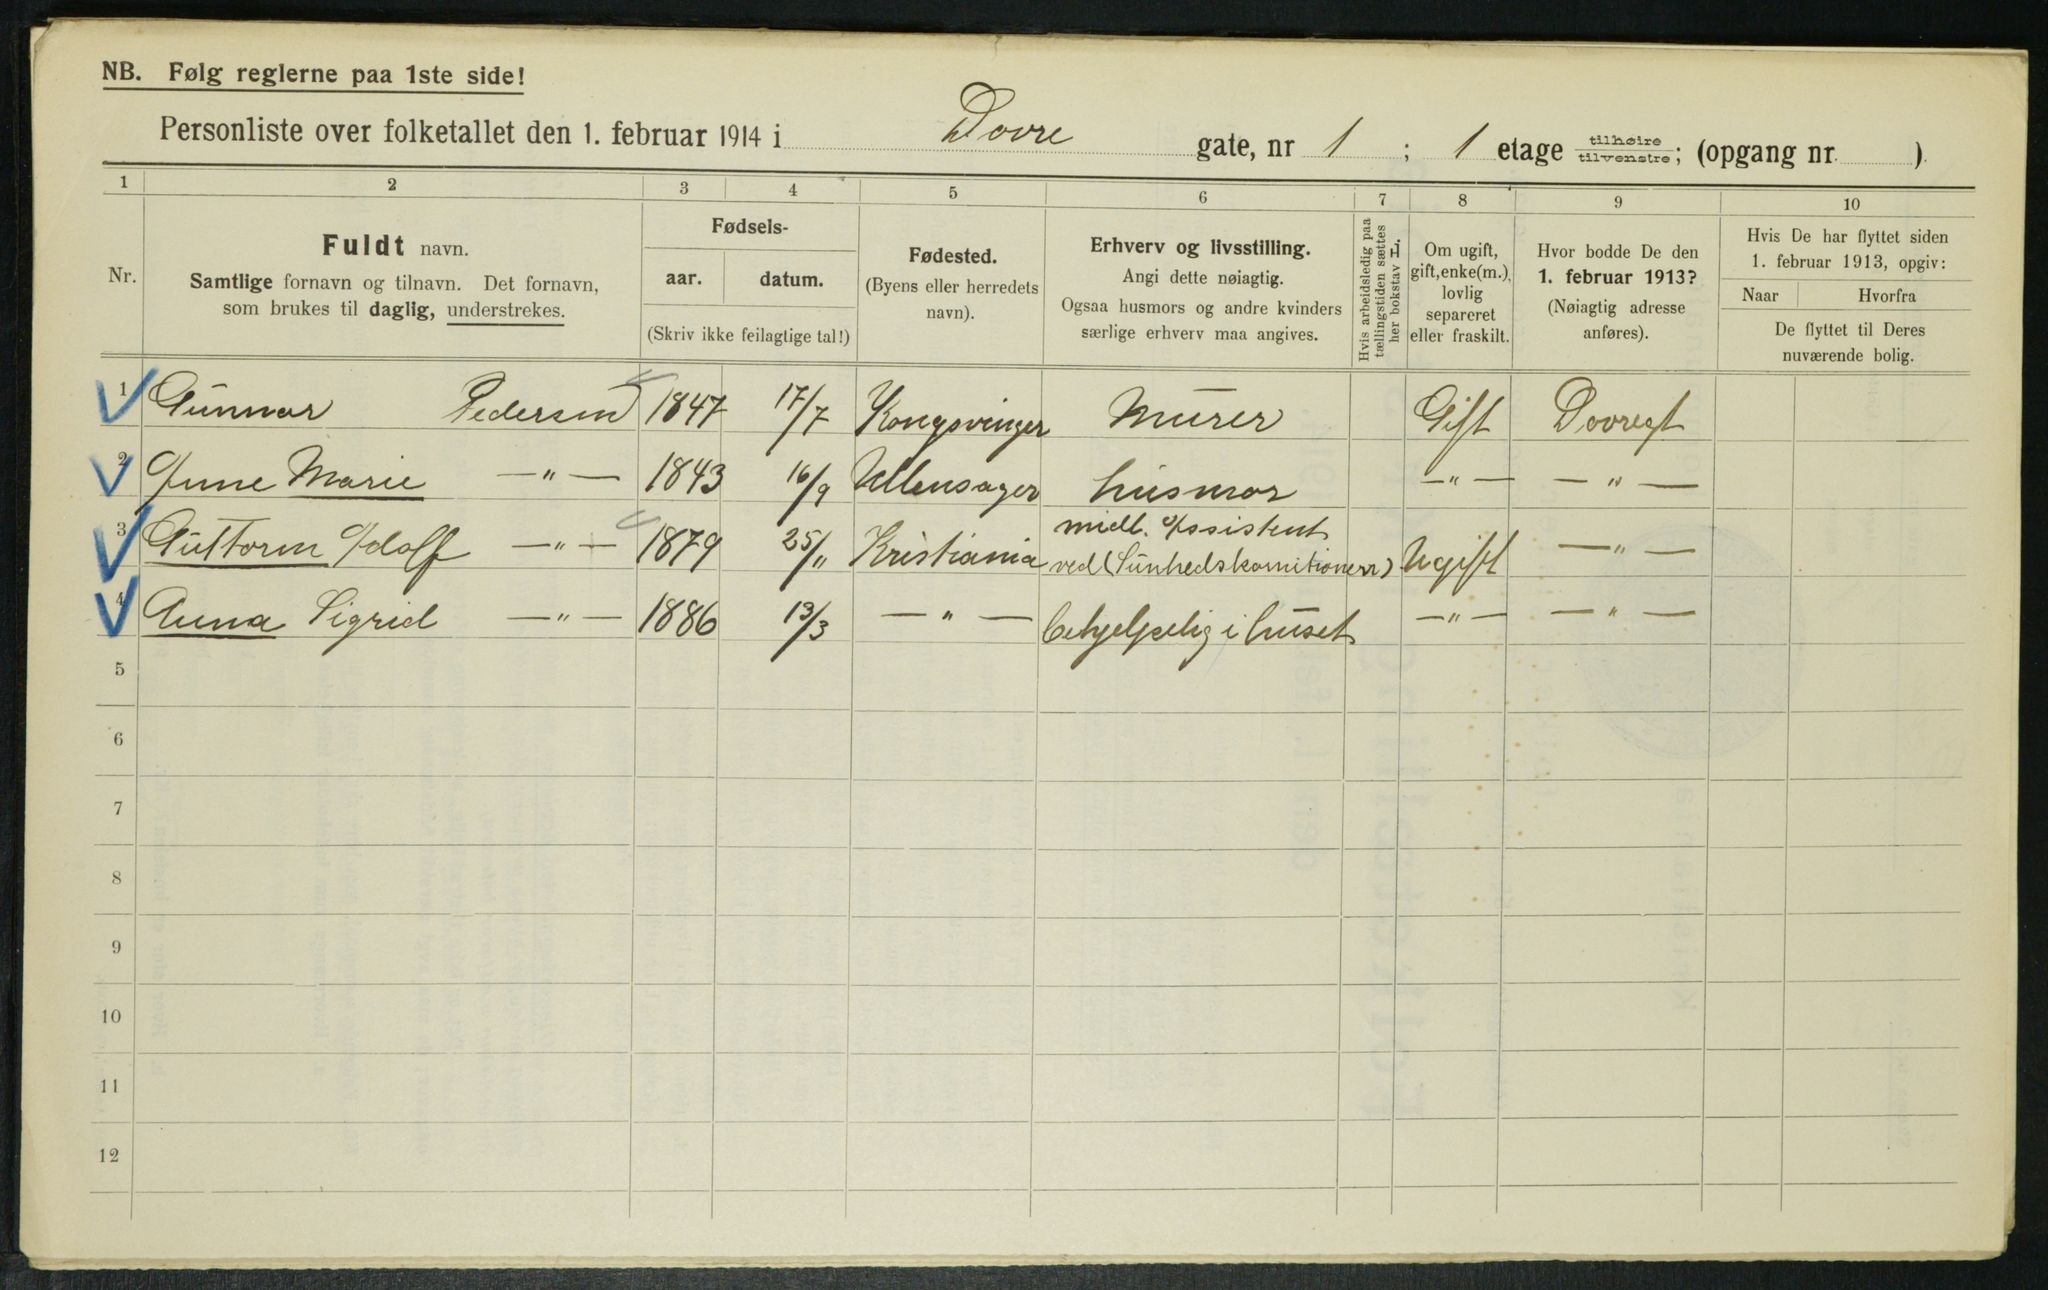 NB. Følg reglerne paa 1ste side!
Personliste over folketallet den 1. februar 1914 i Dovre gate, nr 1 ; 1 etage tilhøire tilvenstre; (opgang nr. )
1 2 3 4 5 6 7 8 9 10
Nr.
Fuldt navn.
Samtlige fornavn og tilnavn. Det fornavn,
som brukes til daglig, understrekes.
Fødsels-
aar. datum.
(Skriv ikke feilagtige tal!)
Fødested.
(Byens eller herredets
navn).
Erhverv og livsstilling.
Angi dette nøiagtig.
Ogsaa husmors og andre kvinders
særlige erhverv maa angives.
Hvis arbeidsledig paa
tællingstiden sættes
her bokstav L.
Om ugift,
gift, enke(m.),
lovlig
separeret
eller fraskilt.
Hvor bodde De den
1. februar 1913?
(Nøiagtig adresse
anføres).
Hvis De har flyttet siden
1. februar 1913, opgiv:
Naar Hvorfra
De flyttet til Deres
nuværende bolig.
1 Gunnar Pedersen 1847 17/7 Kongsvinger Murer Gift Dovregt
2 Anne Marie —"— 1843 16/9 Ullensager husmor —"— —"—
3 Guttorm Adolf —"— 1879 25/11 Kristiania midl. Assistent
ved (Sunhedskomitionen) Ugift —"—
4 Anna Sigrid —"— 1886 13/3 —"— behjelpelig i huset —"— —"—
5
6
7
8
9
10
11
12